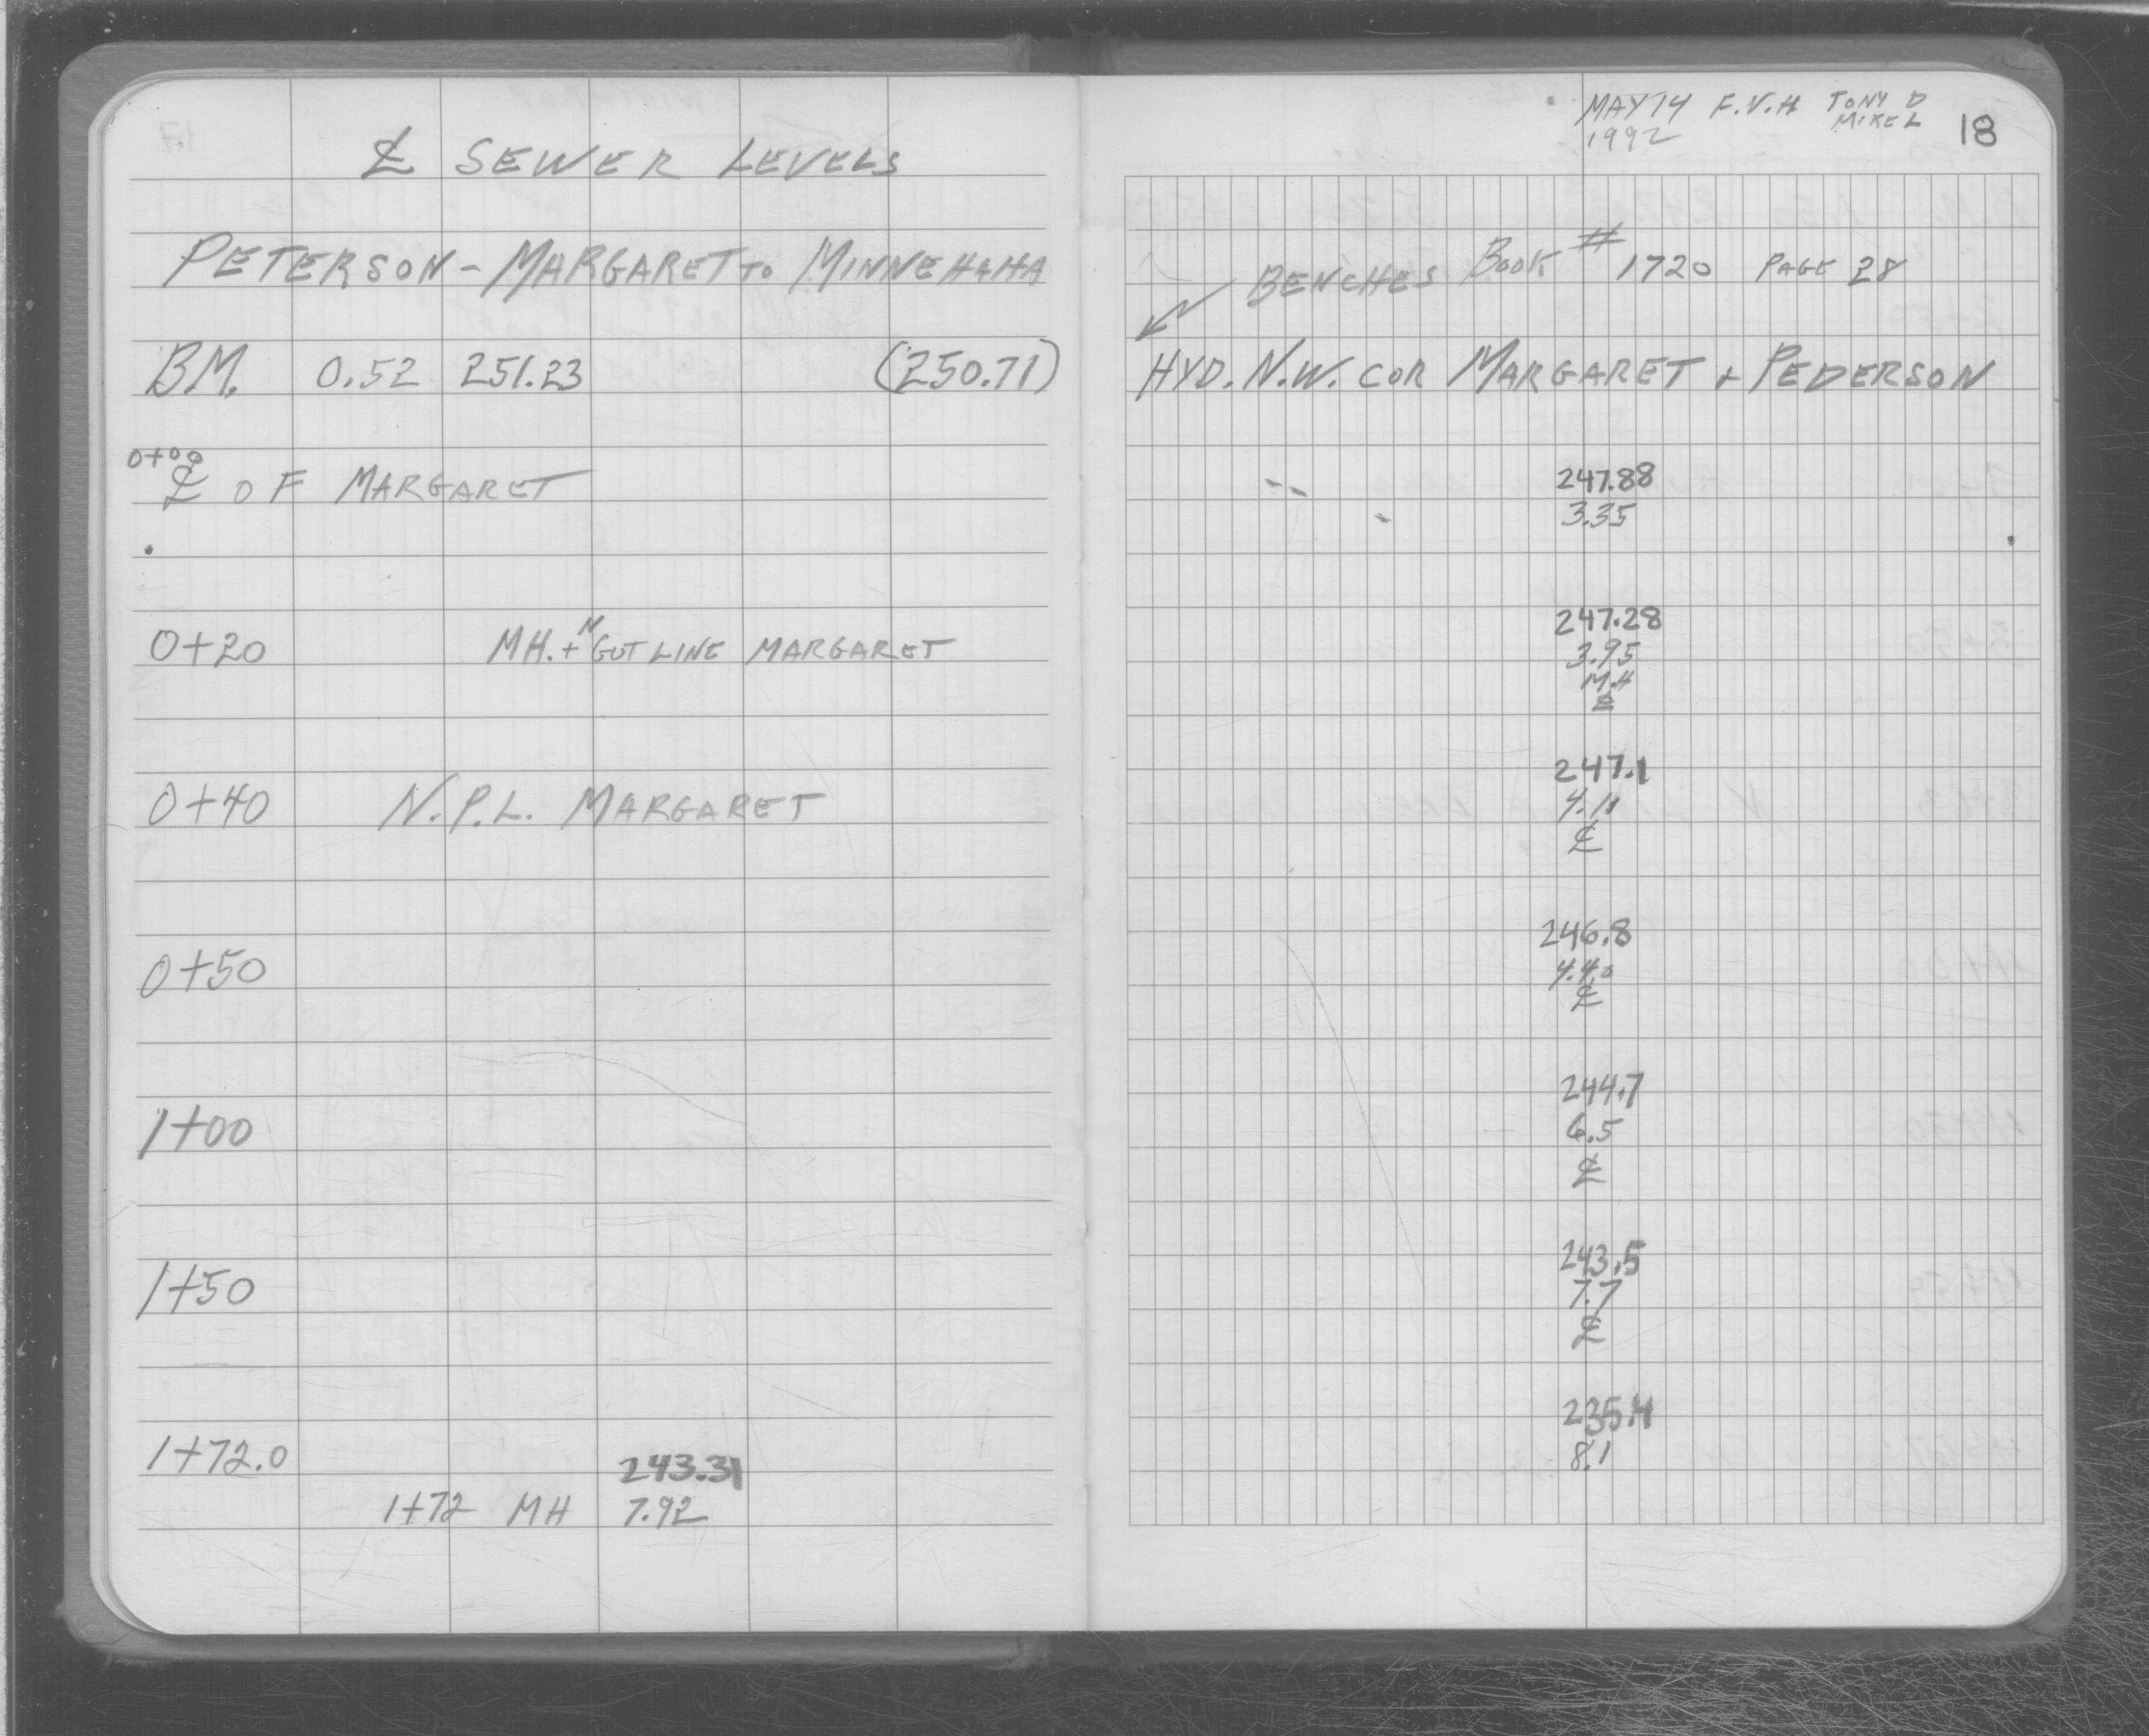 ℄ SEWER LEVELS
PETERSON - MARGARET TO MINNEHAHA
BM. 0.52 251.23 (250.71)
0+00
℄ OF MARGARET
0+20 MH. + N GUT LINE MARGARET
0+40 N.P.L. MARGARET
0+50
1+00
1+50
1+72.0
243.31
1+72 MH 7.92
MAY 14 F.V.H TONY D
1992 MIKE L
18
BENCHES BOOK # 1720 PAGE 28
HYD. N.W. COR MARGARET + PEDERSON
247.88
3.35
247.28
3.95
M.H
℄
247.1
4.11
℄
246.8
4.40
℄
244.7
6.5
℄
243.5
7.7
℄
235.4
8.1